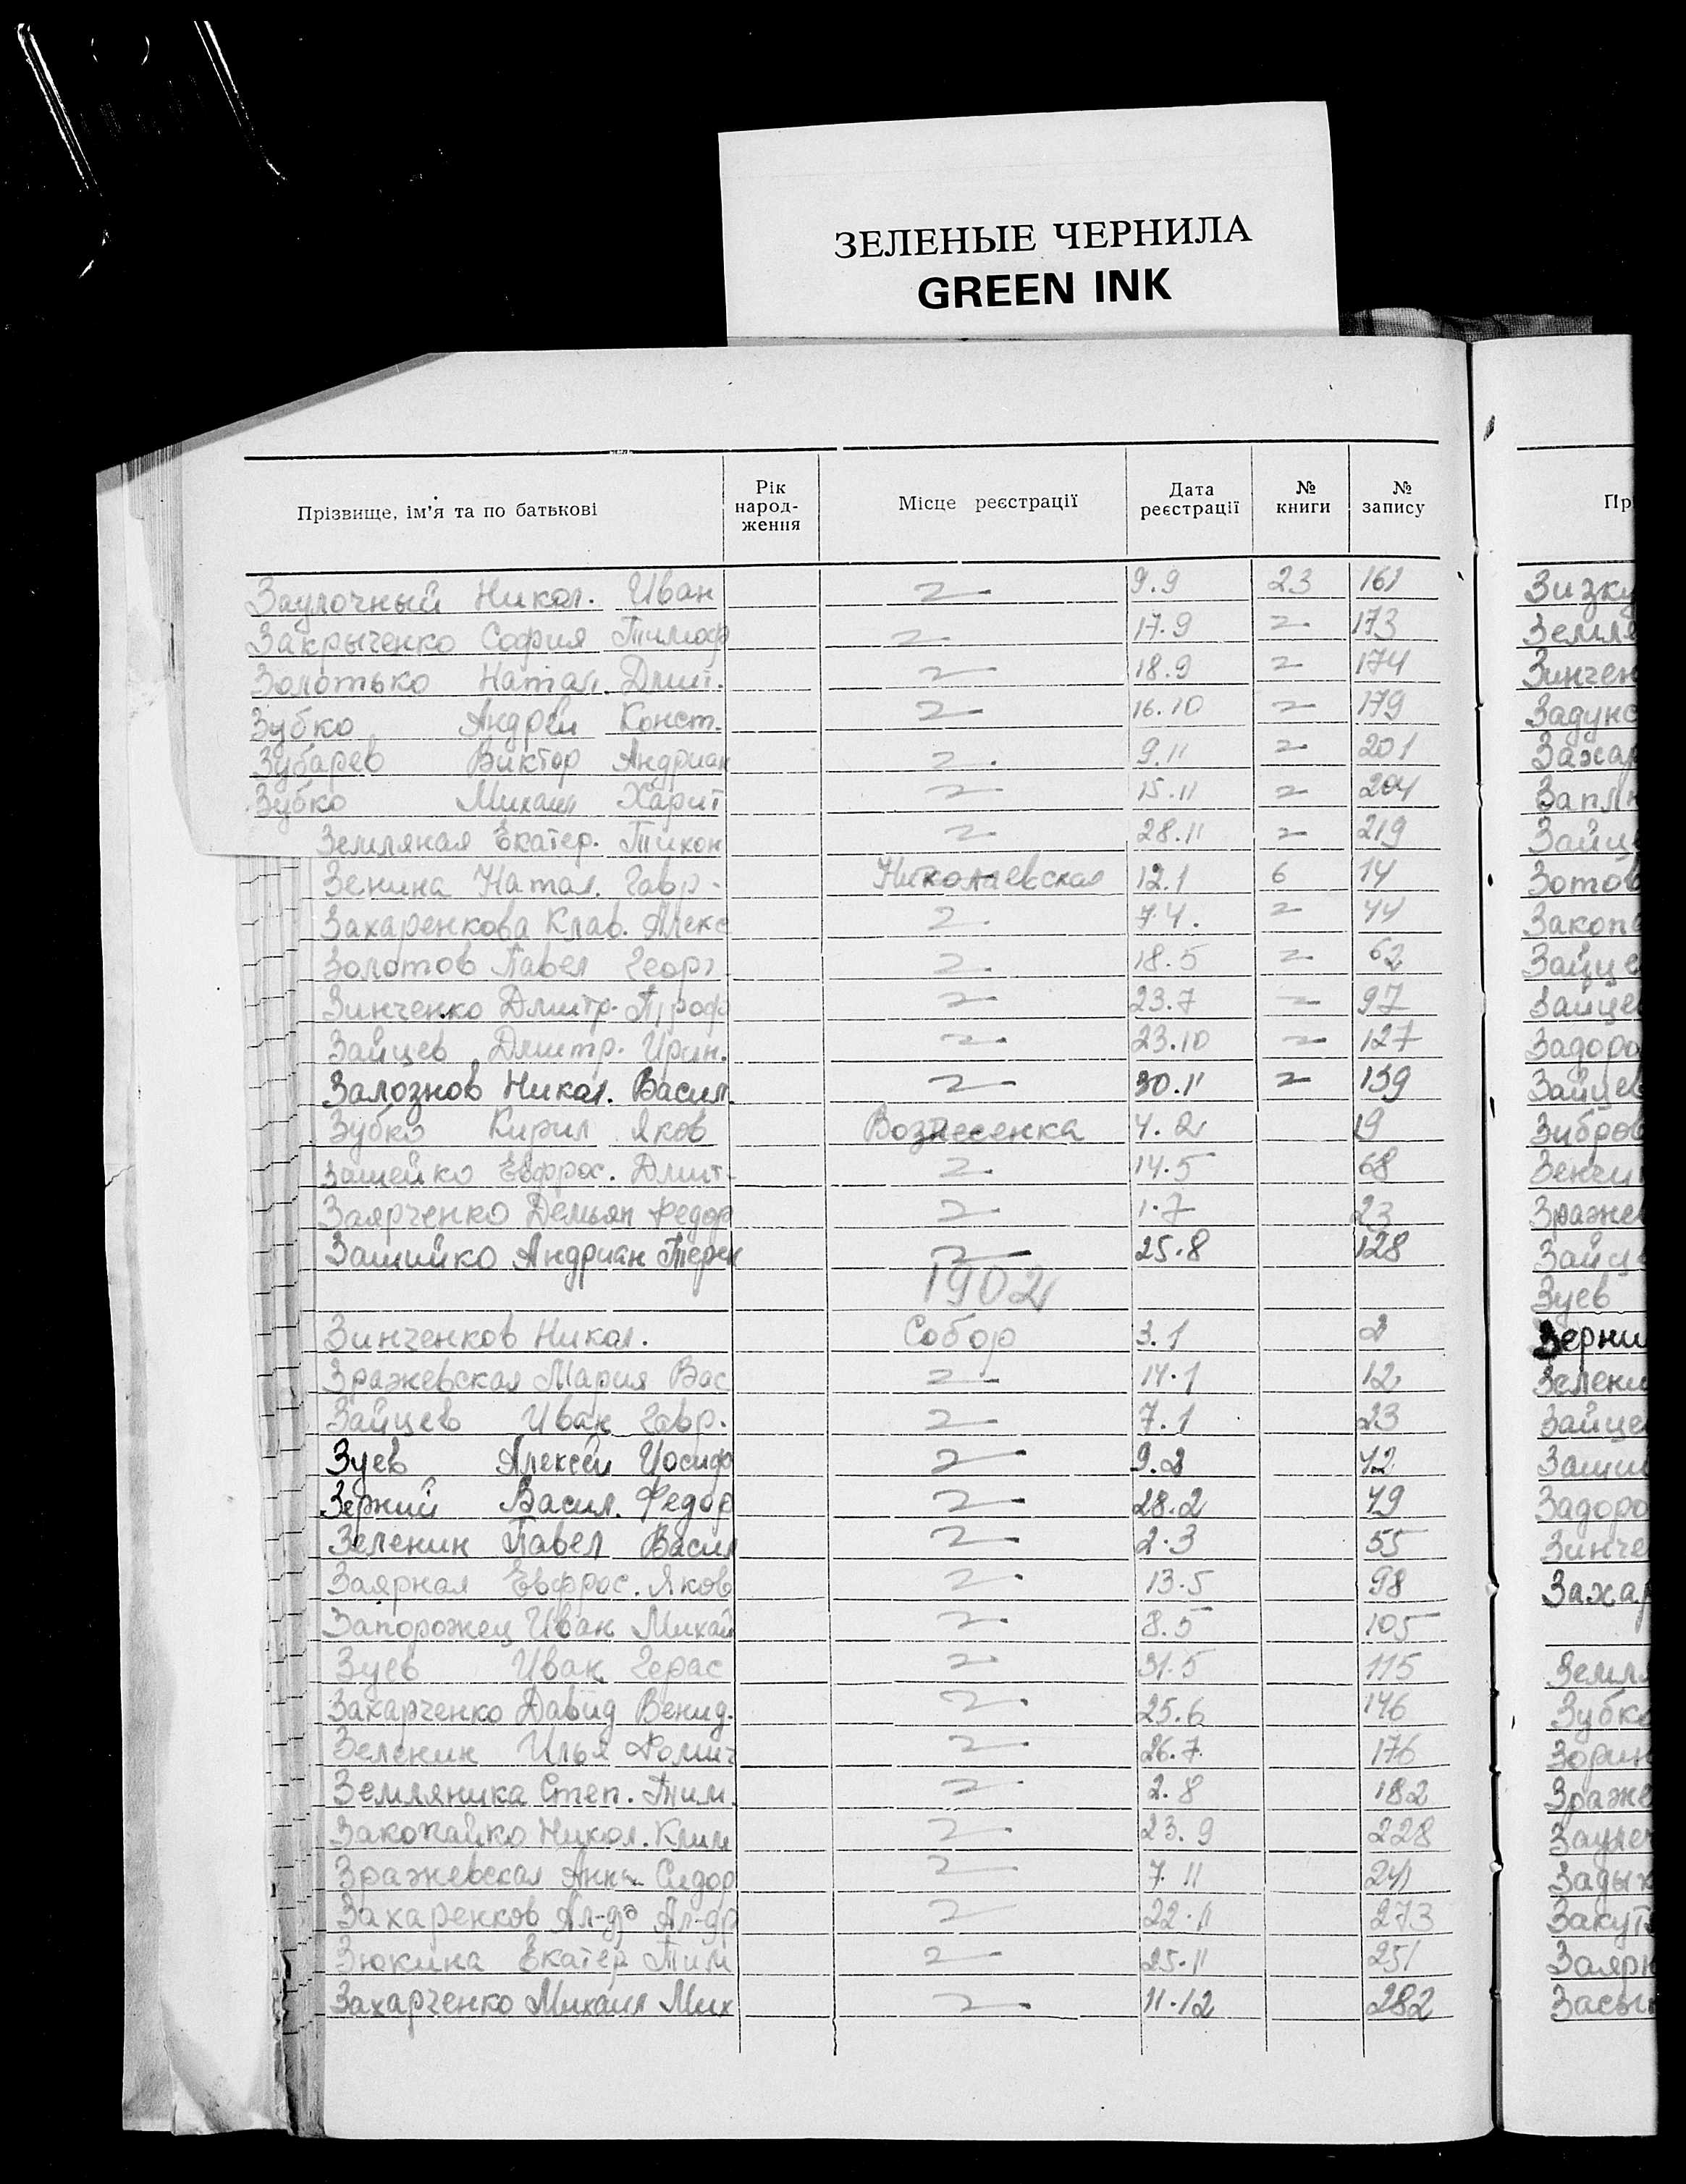 ЗЕЛЕНЫЕ ЧЕРНИЛА
GREEN INK
Прізвище, ім'я та по батькові Рік народ-ження Місце реєстрації Дата реєстрації № книги № запису
Заулочный Никол. Иван 〃 9.9 23 161
Закрыченко София Тимоф 〃 17.9 〃 173
Золотько Натал. Дмит. 〃 18.9 〃 174
Зубко Андрей Конст. 〃 16.10 〃 179
Зубарев Виктор Андриан 〃 9.11 〃 201
Зубко Михаил Харит 〃 15.11 〃 204
Земляная Екатер. Тихон 〃 28.11 〃 219
Зенина Натал. Гавр. Николаевская 12.1 6 14
Захаренкова Клав. Алекс 〃 7.4. 〃 44
Золотов Павел Георг. 〃 18.5 〃 62
Зинченко Дмитр. Троф 〃 23.7 〃 97
Зайцев Дмитр. Ирин. 〃 23.10 〃 127
Залознов Никол. Васил. 〃 30.11 〃 139
Зубко Кирил Яков Вознесенка 4.2 19
Зашейко Евфрос. Дмит. 〃 14.5 68
Заярченко Демьян Федор 〃 1.7 23
Зашийко Андриан Терен 〃 25.8 128
1902
Зинченков Никол. Собор 3.1 2
Зражевская Мария Вас 〃 14.1 12
Зайцев Иван Гавр. 〃 7.1 23
Зуев Алексей Иосиф 〃 9.2 42
Зерний Васил. Федор 〃 28.2 49
Зеленин Павел Васил 〃 2.3 55
Заярная Евфрос. Яков 〃 13.5 98
Запорожец Иван Михай 〃 8.5 105
Зуев Иван Герас 〃 31.5 115
Захарченко Давид Венид. 〃 25.6 146
Зеленин Илья 〃 26.7. 176
Земляника Степ. Тим. 〃 2.8 182
Закопайко Никол. Клим 〃 23.9 228
Зражевская Анна Сидор 〃 7.11 241
Захаренков Ал-др Ал-др 〃 22.11 273
Зюкина Екатер Тим 〃 25.11 251
Захарченко Михаил Мих 〃 11.12 282
Пр
Зизку
Земля
Зинчен
Задунс
Захар
Зайце
Зотов
Закопа
Зайце
Зайцев
Задоро
Зайцев
Зибров
Зражев
Зайце
Зуев
Зерни
Зелени
Зайце
Заши
Задоро
Зинче
Захар
Земля
Зубко
Зорин
Зраже
Заулоч
Задых
Закут
Заярн